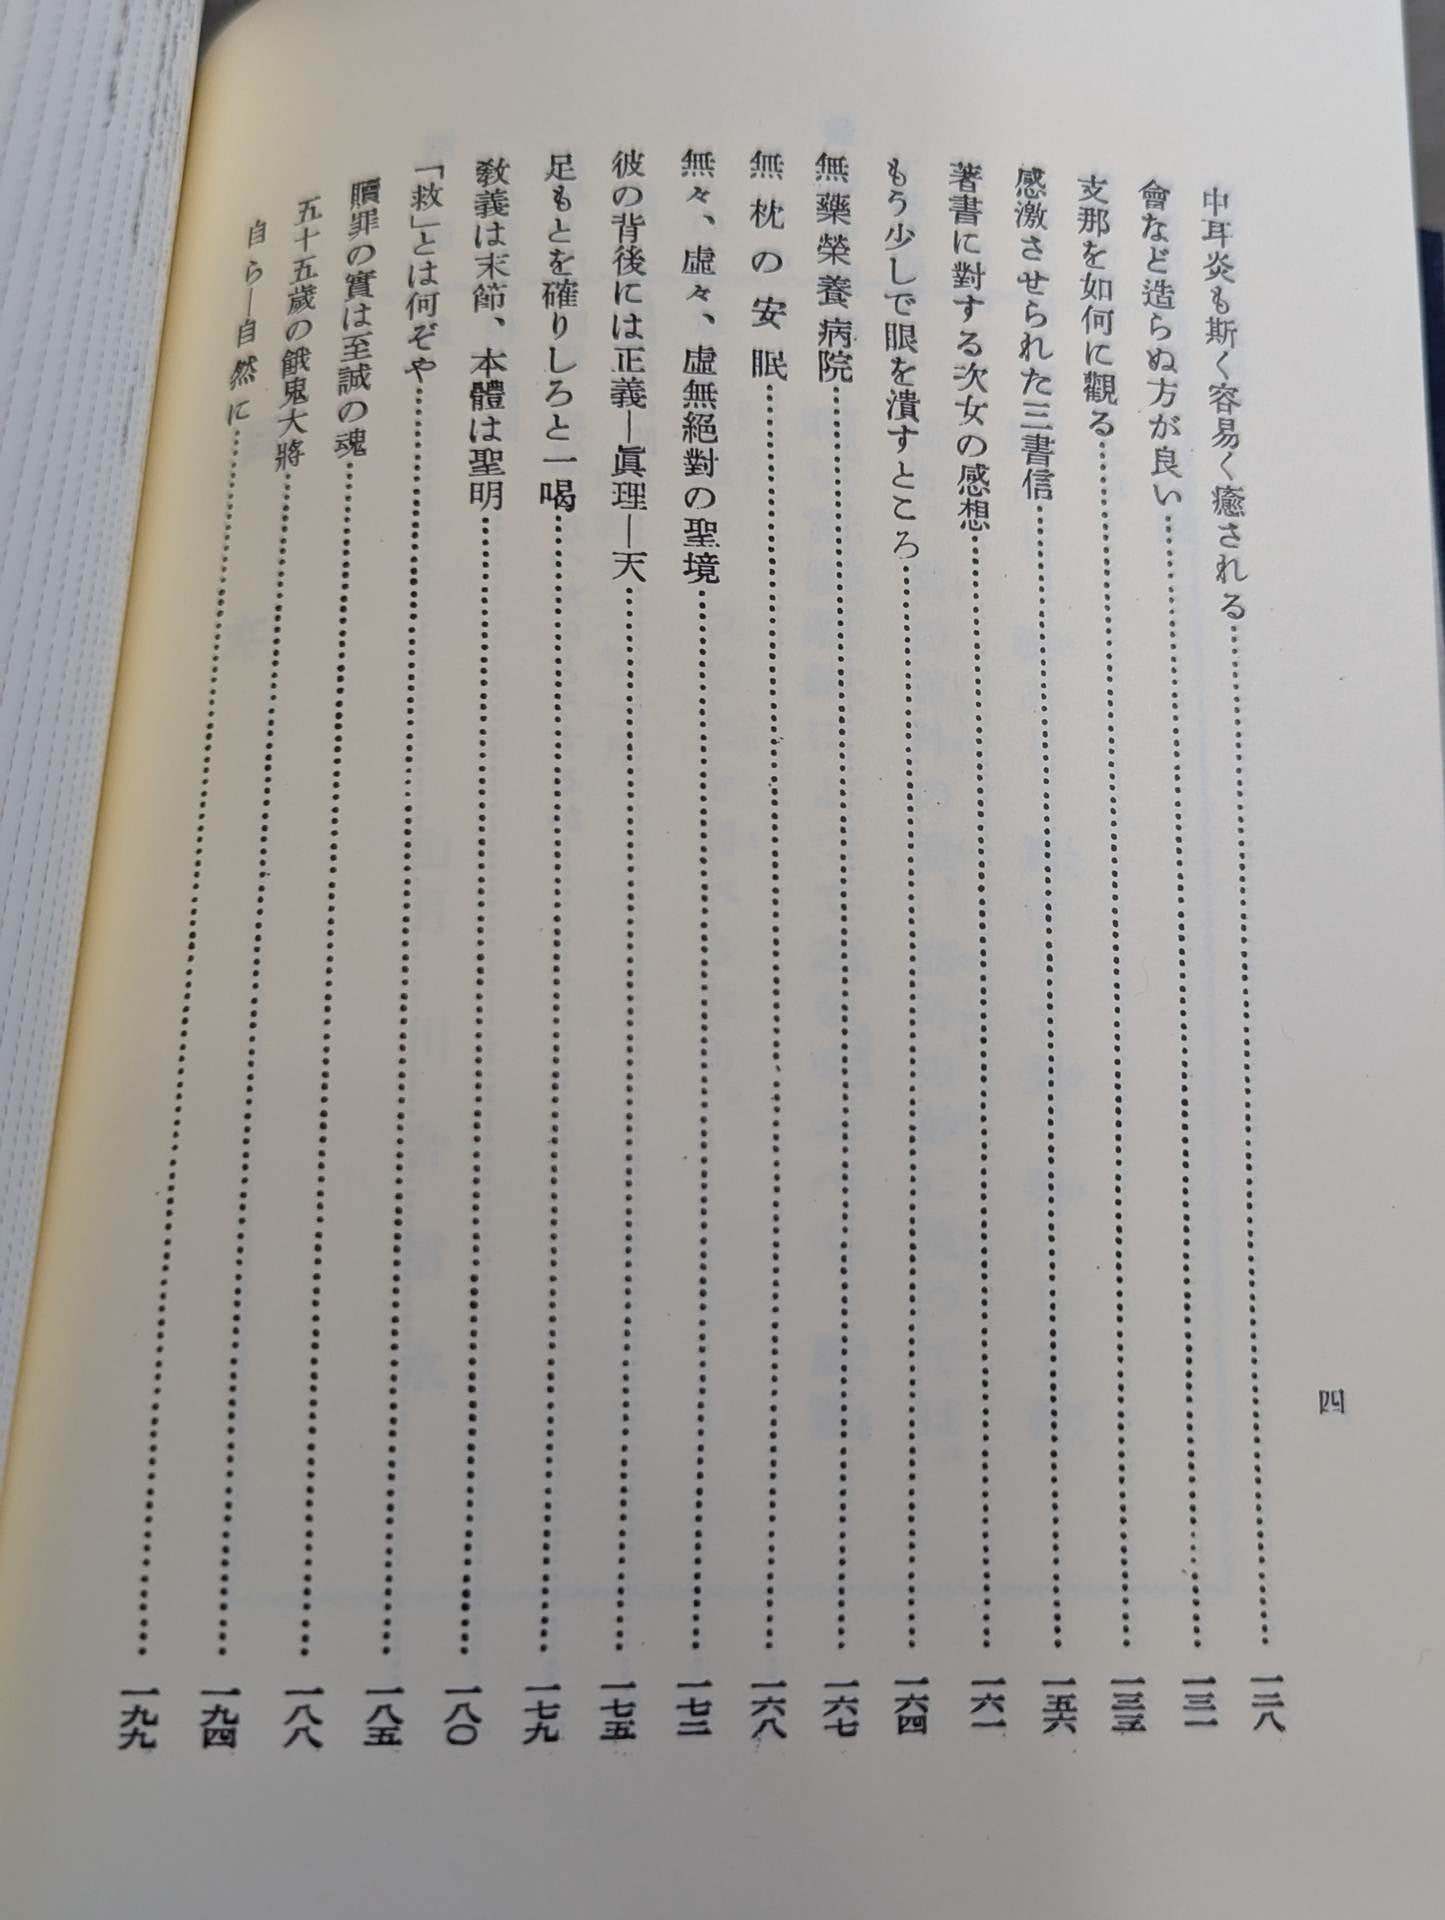 四
中耳炎も斯く容易く癒される……一二八
會など造らぬ方が良い……一三一
支那を如何に觀る……一三五
感激させられた三書信……一五六
著書に對する次女の感想……一六一
もう少しで眼を潰すところ……一六四
無藥榮養病院……一六七
無枕の安眠……一六八
無々、虛々、虛無絕對の聖境……一七二
彼の背後には正義―眞理―天……一七五
足もとを確りしろと一喝……一七九
敎義は末節、本體は聖明……一八〇
「救」とは何ぞや……一八五
贖罪の實は至誠の魂……一八八
五十五歲の餓鬼大將……一九四
自ら―自然に……一九九